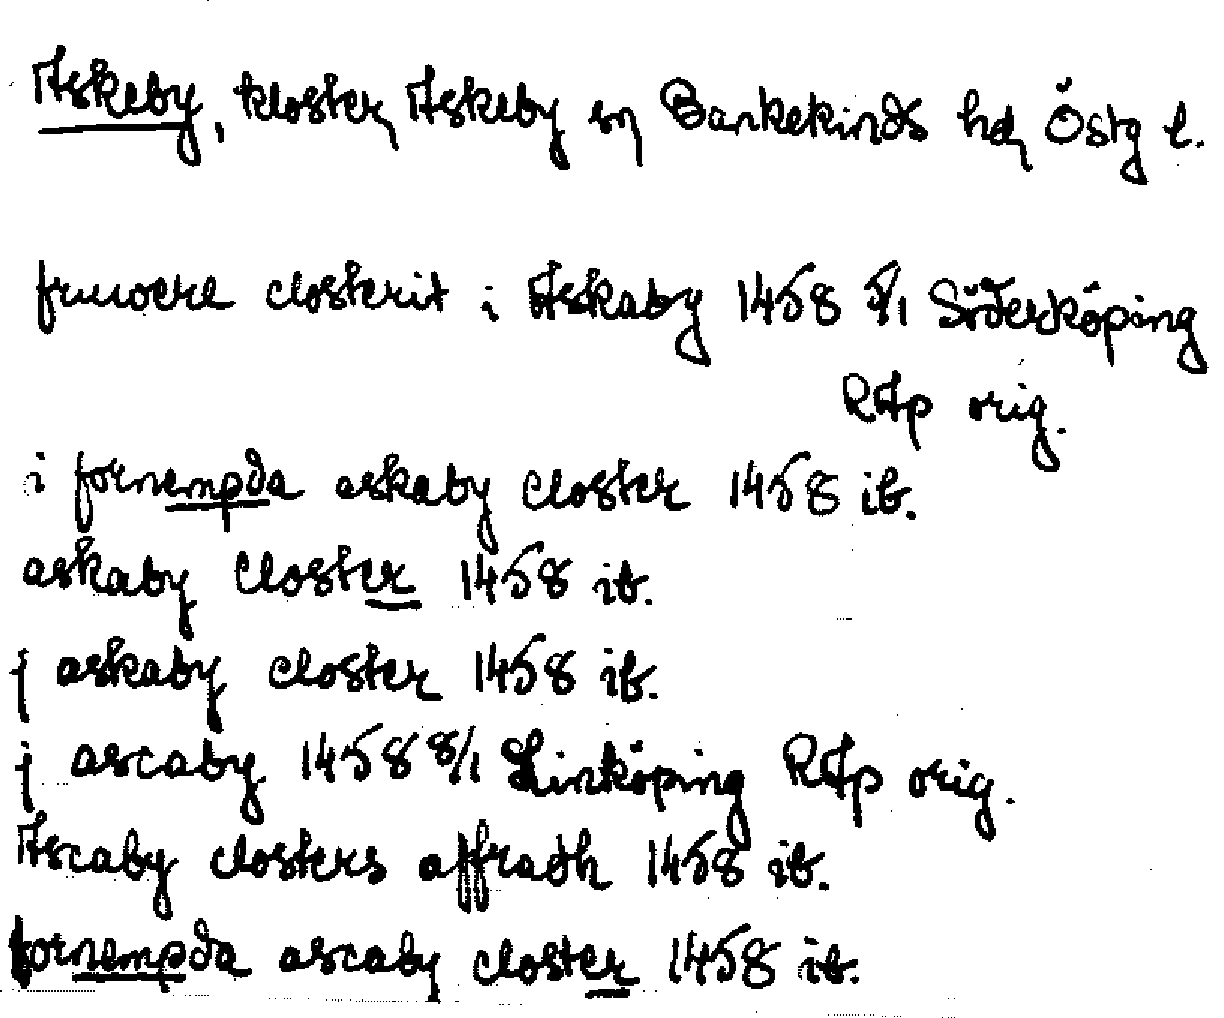 Askeby, kloster, Askeby sn Bankekinds hd, Östg l.
fruwore closterit i Askaby 1458 5/1 Söderköping
RAp orig.
i fornempda askaby closter 1458 ib.
askaby closter 1458 ib.
j askaby closter 1458 ib.
j ascaby 1458 8/1 Linköping RAp orig.
Ascaby closters affradh 1458 ib.
fornempda ascaby closter 1458 ib.